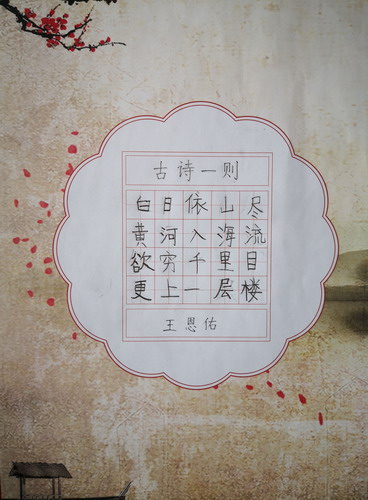 古诗一则
白日依山尽
黄河入海流
欲穷千里目
更上一层楼
王恩佑